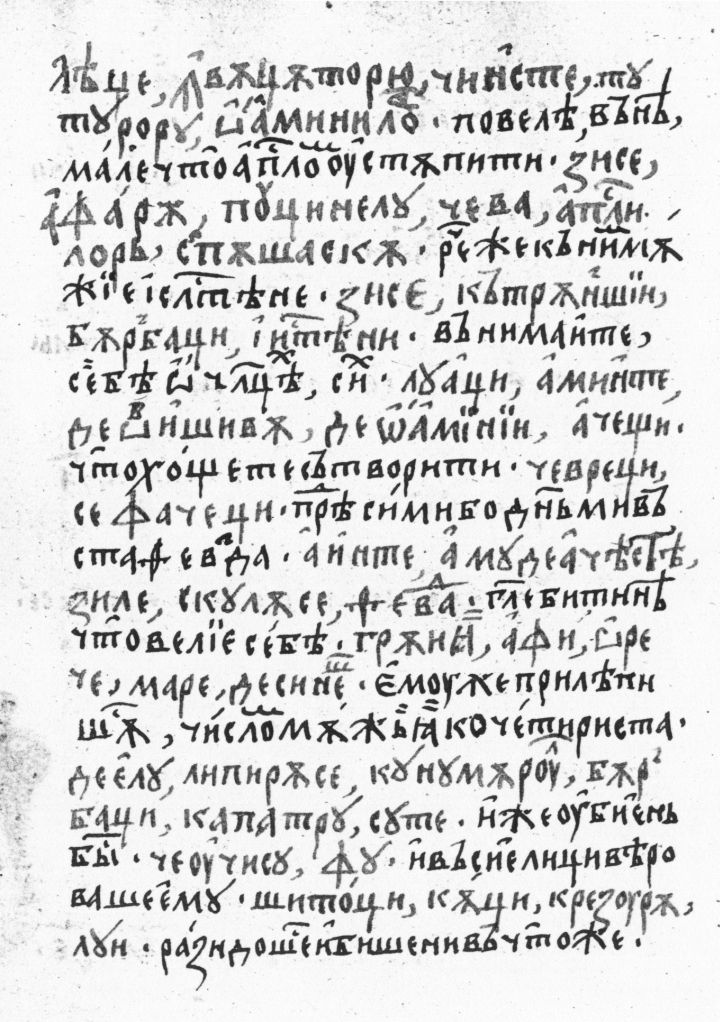 лѣце, лвѫцѫторю, чинсте, ту
турору, ѿаминило. повелѣ, вънѣ,
малечтоапⷭ҇лоⷨоустѫпити. зисе,
афарѫ, пуцинелу, чева, апⷭ҇ли.
лорь, спѫшаскѫ. рⷱ҇ежекънимⷨѫ
жїеіслⷭ҇тѣне. зисе, кътрѫншїи,
бѫрбаци, іиⷭ҇тѣни. вънимаите,
себѣ ѿчлⷱ҇цѣⷯ, сиⷯ. луаци, аминте,
девⷡ҇ишивѫ, деѡамїнїи, ачещи.
чтохощетесътворити. чевреци,
се фачеци. прⷣѣсимибоднъмивъ
стаѳевⷣа. аинте, амудеачѣстѣ,
зиле, скулѫсе, ѳеваⷣ. глебитинѣ
чтовелїесебѣ. грѫинⷣ, афи, ѿре
че, маре, десинеⷲ. емоужеприлѣпи
шⷭ҇ѫ, числомⷨѫжъꙗкочетириста.
деелу, липирѫсе, кунумѫроу, бѫр
баци, капатру, суте. ижеоубиень
быⷭ҇. чеоучису, фу. ивъсиелицивѣро
вашеему. шитоци, кѫци, крезоурѫ,
луи. разидошеⷭ҇ибишенивъчтоже.